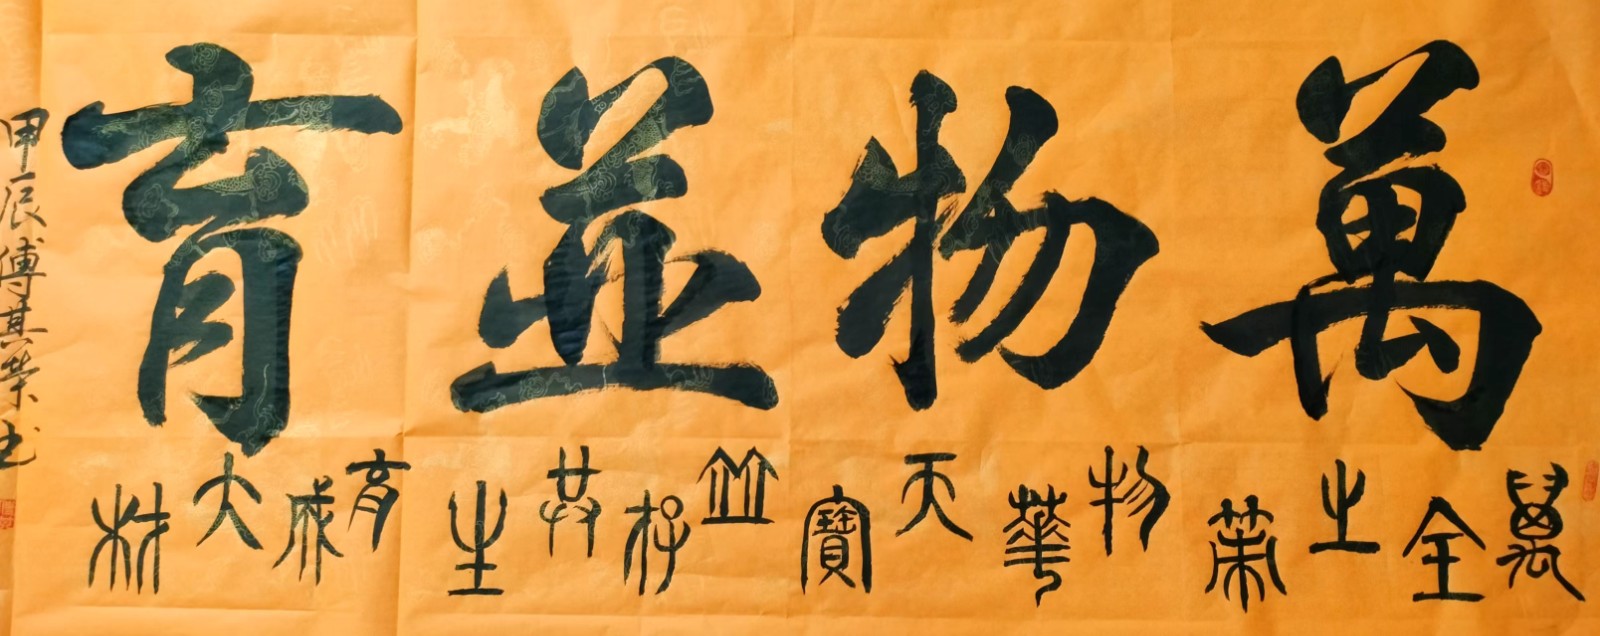 萬物並育
萬全之策
物華天寶
並存共生
育成大材
甲辰傅其荣书